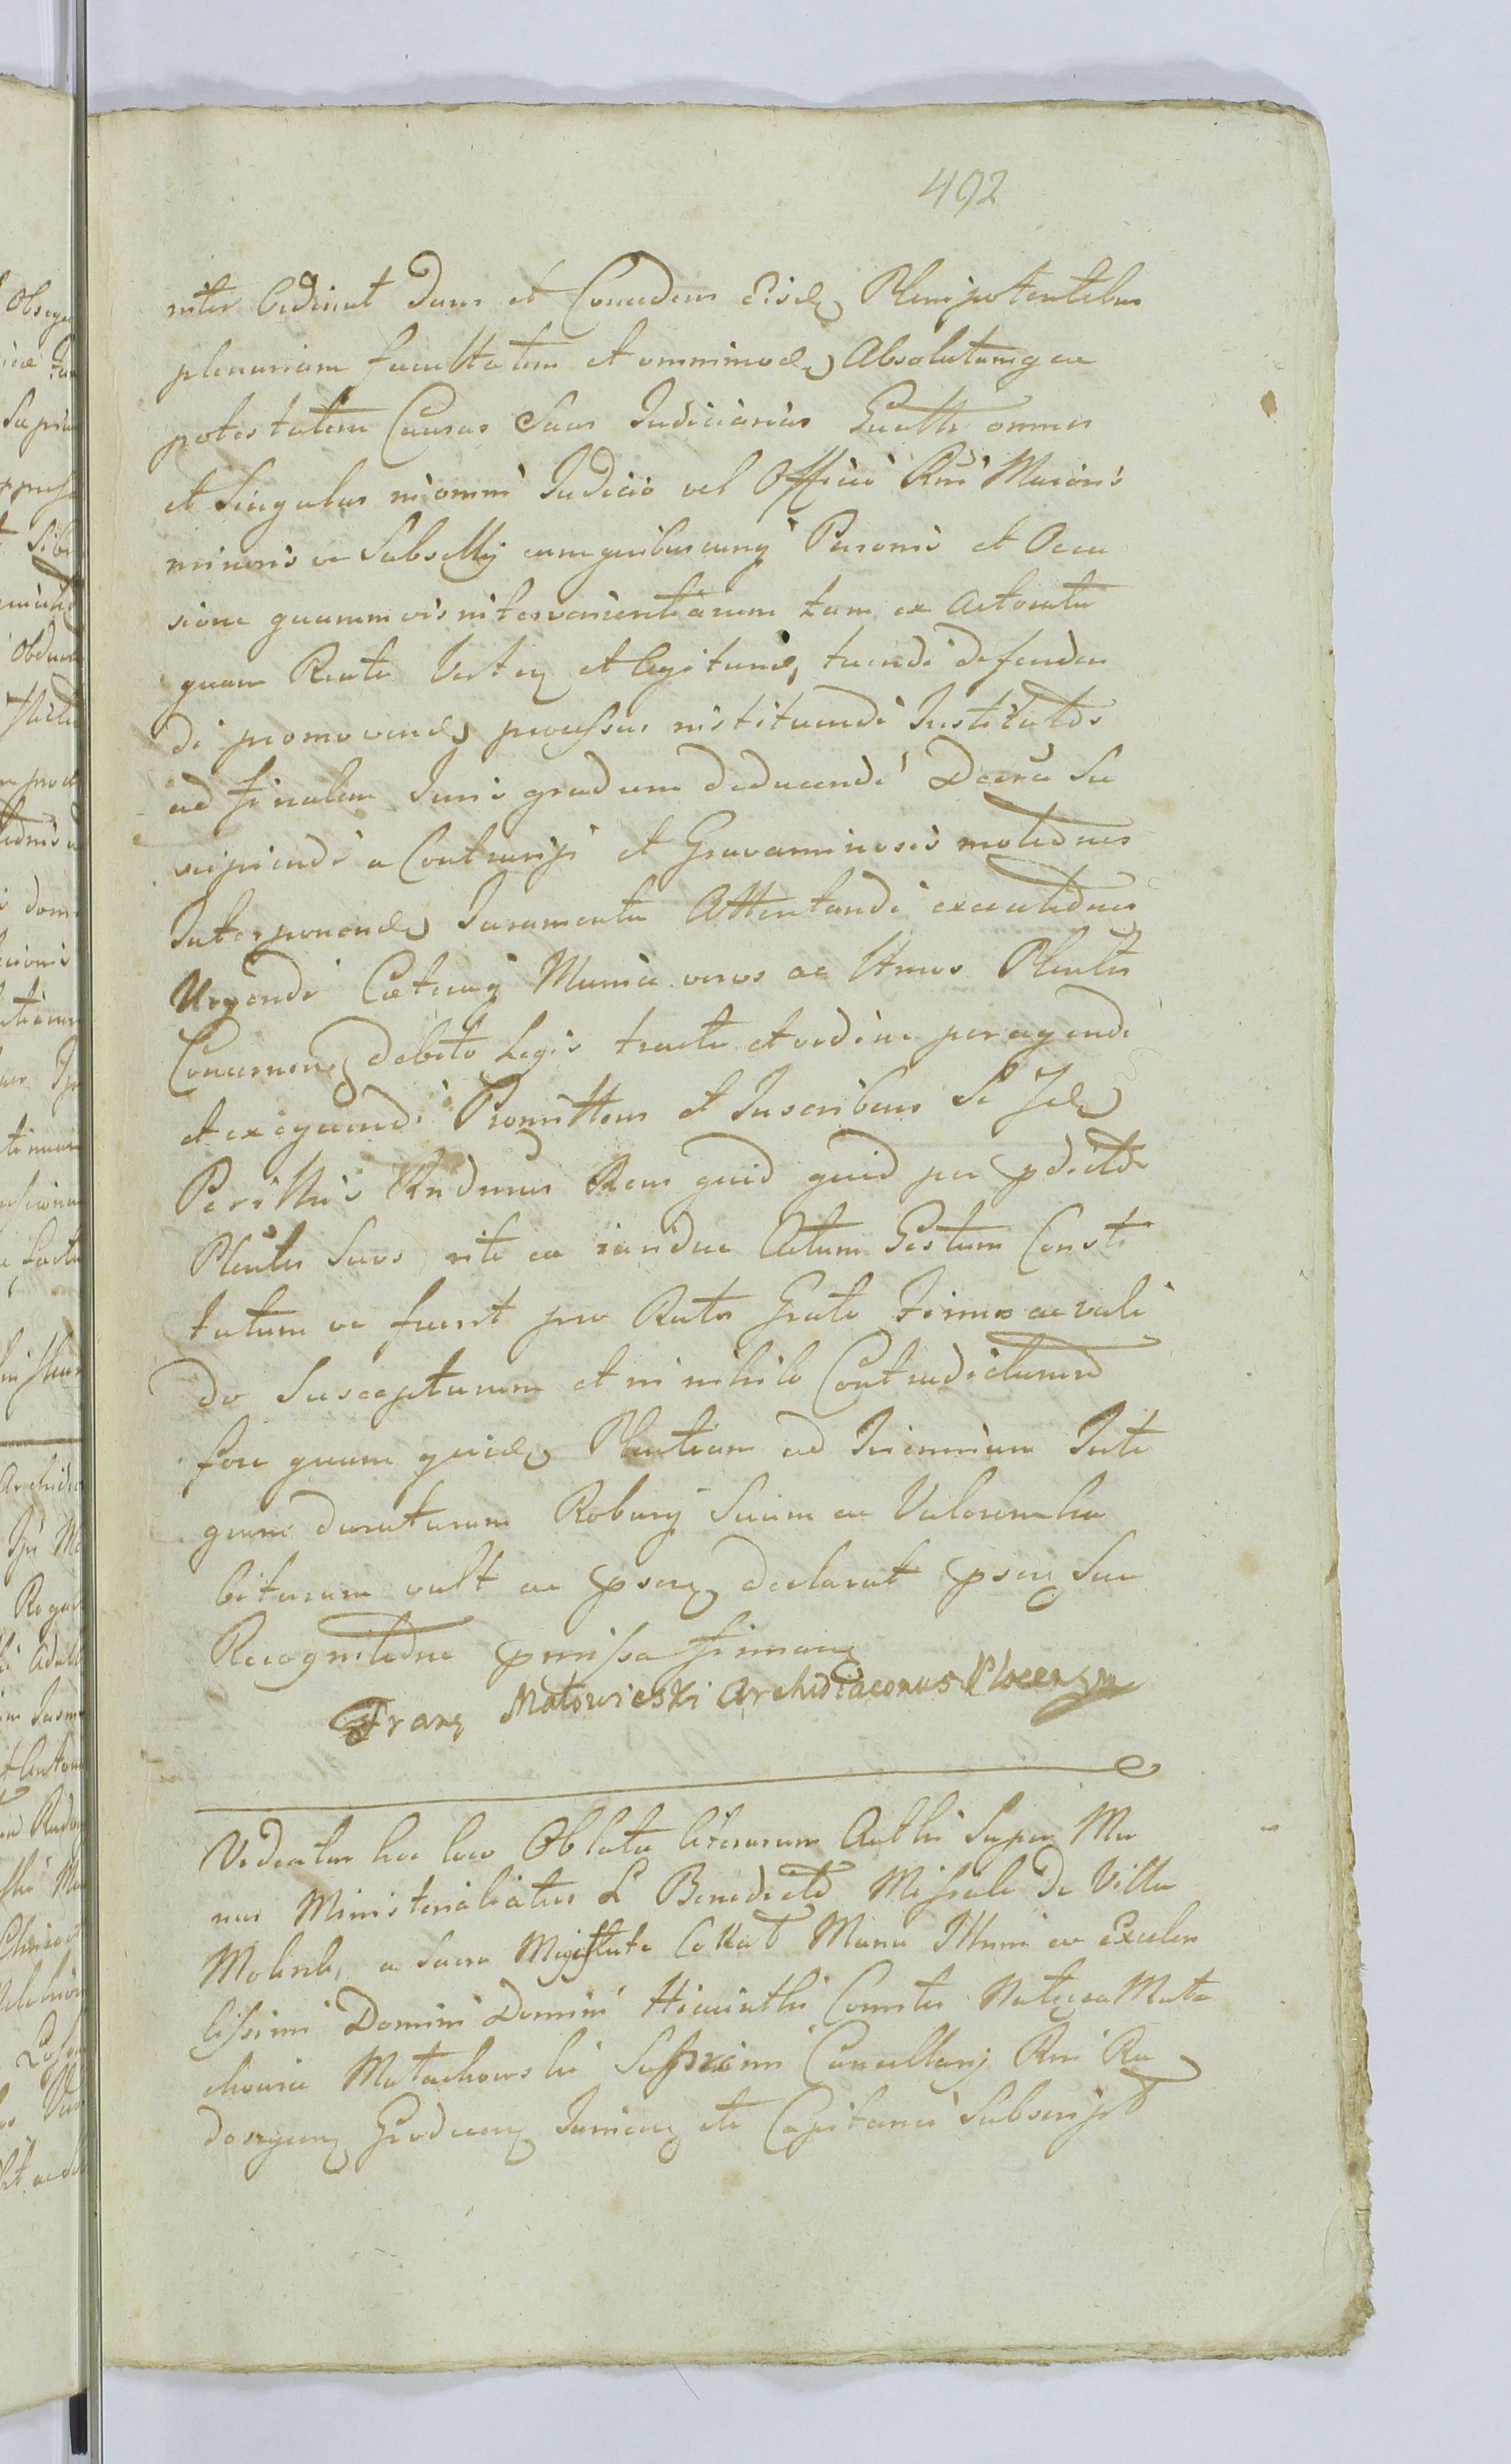 492
niter Ordinat Dans et Concedens Eisd Plenipotentibus
plenariam facultatem et omnimod Absolutamq ac
potestatem Causas Suas Judiciarias Gnatts omnes
et Singulas in omni Judicio vel Officio Rni Maioris
minoris ve Subsellij cum quibuscunq Personis et Occa
sione quarumvis intervenientiarum tam ex Actoratu
quam Reatu Iustas et legitimas, tuendi defenden
di promovend processus instituendi Institutos
ad finalem Juris gradum deducendi Decreta Su
scipiendi a Contrarijs et Gravaminosis motionibus
Interponend Juramenta Attentandi executiones
Urgendi Caeteraq Munia veros ac Unos Plentes
Concernen debito Legis tractu et ordine peragendi
et exequendi Promittens et Inscribens Se Id
Perillris Rndmus Rens quid quid per pdictos
Plentes Suos rite ac iuridice Actum Gestum Consti
tutum ve fuerit pro Rato Grato Firmo ac vali
do Suscepturum et in nihilo Contradicturum
fore quam quid Plentiam ad Triennium Inte
grum duraturam Roburq Suum ac Valorem ha
bituram vult ac psens declarat psenq Sua
Recognitione pmissa firmanq
Franc Małowieski Archidiaconus Plocensis
Videatur hoc loco Oblata literarum Authi Super Mu
nus Ministerialiatus L Benedicto Missala De Villa
Molend, a Sacra Majestate Collat Manu Illmi ac Excelen
tissimi Domini Domini Hiacinthi Comitis Nałęcz a Mała
chowice Małachowski Supremi Cancellarij Rni Ra
doszycen Grodecen Junicen etc Capitanei Subscript